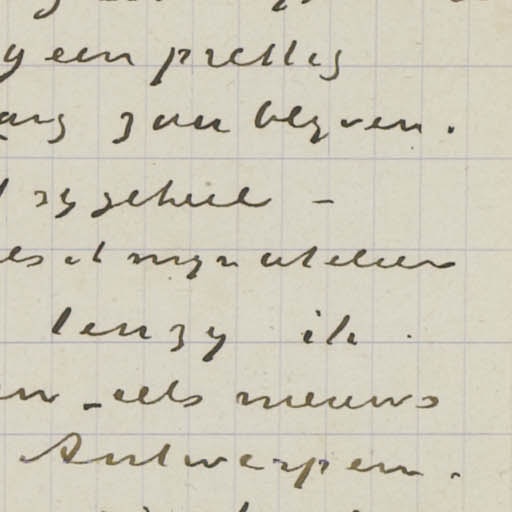 geen prettig
lang zou blyven.
zy geheel -
als it myn atelier
tenzy ik.
en - iets nieuws
Antwerpen.